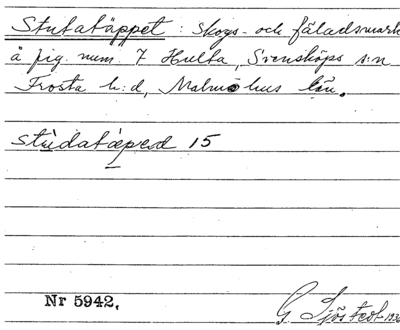 Stutatäppet : Skogs- och fäladsmark
å fig. num. 7 Hulta, Svensköps s:n
Frosta h:d, Malmöhus län.
stùdatæped 15
Nr 5942.
G. Sjöstedt 1936